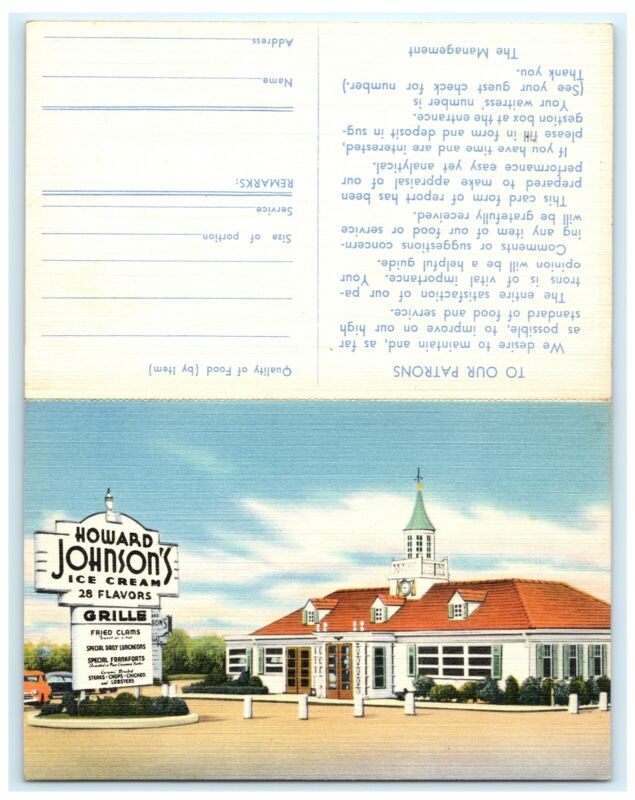 TO OUR PATRONS
We desire to maintain and, as far
as possible, to improve on our high
standard of food and service.
The entire satisfaction of our pa-
trons is of vital importance. Your
opinion will be a helpful guide.
Comments or suggestions concern-
ing any item of our food or service
will be gratefully received.
This card form of report has been
prepared to make appraisal of our
performance easy yet analytical.
If you have time and are interested,
please fill in form and deposit in sug-
gestion box at the entrance.
Your waitress' number is
(See your guest check for number.)
Thank you.
The Management
Quality of Food (by Item)
Size of portion
Service
REMARKS:
Name
Address
HOWARD
JOHNSON'S
ICE CREAM
28 FLAVORS
GRILLE
FRIED CLAMS
SPECIAL DAILY LUNCHEONS
SPECIAL FRANKFORTS
STEAKS-CHOPS-CHICKEN
AND LOBSTERS